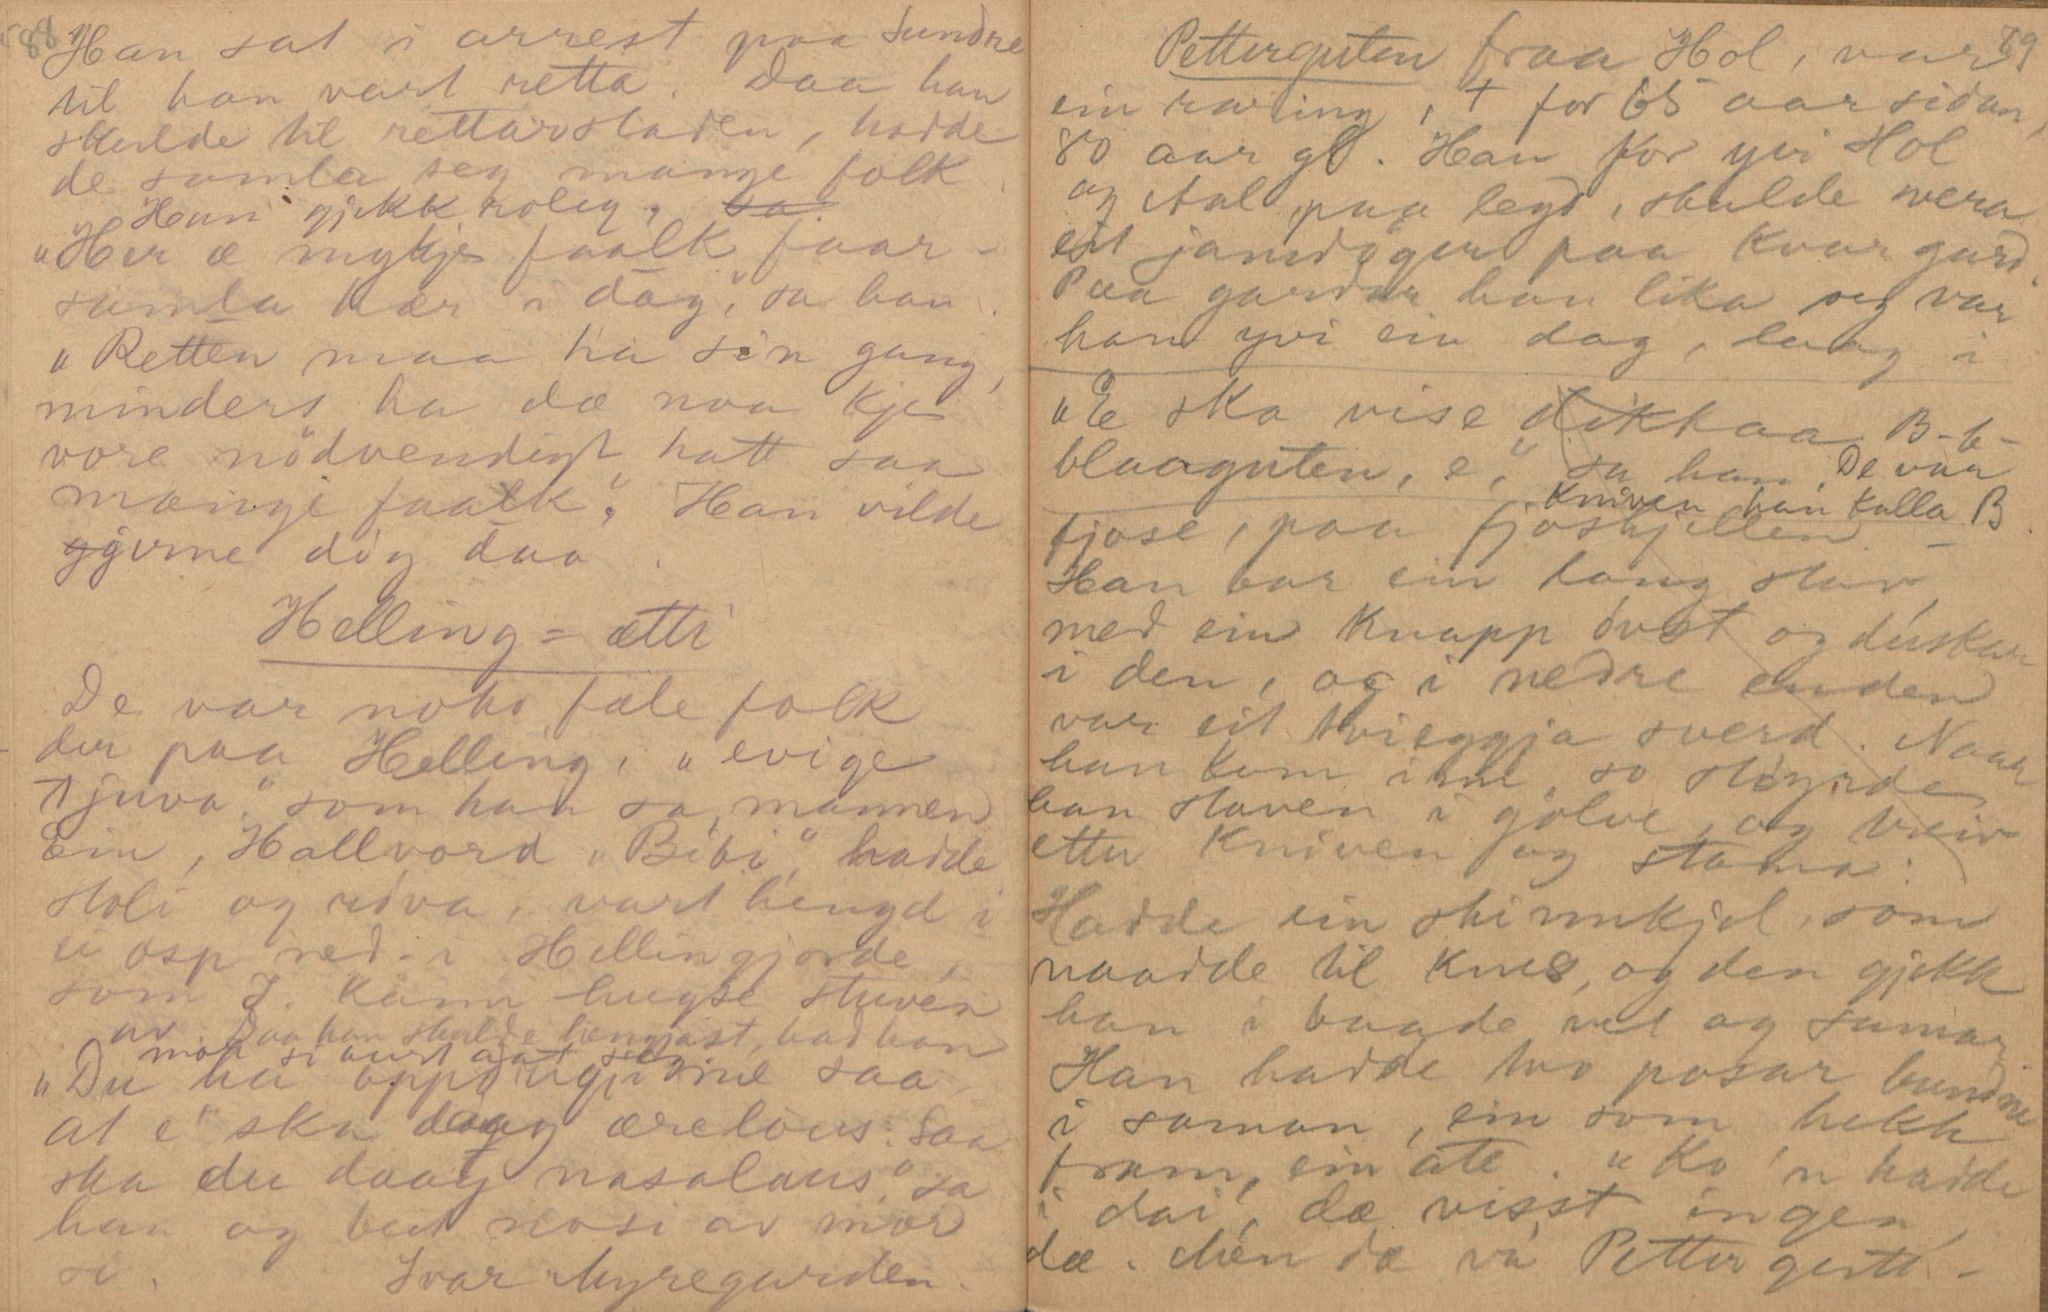 88
Han sat i arrest paa Sundre
til han vart retta. Daa han
skulde til rettarstaden, hadde
de samla seg mange folk.
Han gjekk roleg, sa.
"Her æ mykje faalk faar-
samla hær i dag", sa han.
"Retten maa ha sin gang,
minders ha dæ noa kje
vore nödvendigt hatt saa
mange faalk". Han vilde
gjerne döy daa.
Helling-ætti
De var noko fæle folk
der paa Helling, "evige
tjuva" som han sa, mannen
Ein, Hallvord "Bibi", hadde
stoli og röva, vart hengd i
ei osp ned i Hellingjorde,
som I. kann hugse stuven
av. Daa han skulde hengjast, bad han
mor si
"Du ha oppdugji me saa
at e ska döy ærelaus. Saa
ska du daag nasalaus", sa
han og beit nosi av mor
si. Ivar Myregarden.
89
Petterguten fraa Hol, var
ein raring, + for 65 aar sidan,
80 aar gl. Han for yvi Hol
og Aal paa legd, skulde vera
eit jamdöger paa kvar gard.
Paa gardar han lika seg var
han yvi ein dag, laag i
"E ska vise dikkaa B-b-
blaaguten, e," sa han. De var
kniven han kalla B.
fjose, paa fjoshjellen
Han bar ein lang stav
med ein knapp övst og duskar
i den, og i nedre enden
var eit tvieggja sverd. Naar
han kom inn, so stöyrde
han staven i golve, og treiv
etter kniven og stama:
Hadde ein skinnkjol, som
naadde til knes, og den gjekk
han i baade vet og sumar
Han hadde tvo posar bundne
i saman, ein som hekk
fram, ein atte. "Ko 'n hadde
i dai, dæ visst ingen
dæ. Men dæ va Petterguti-